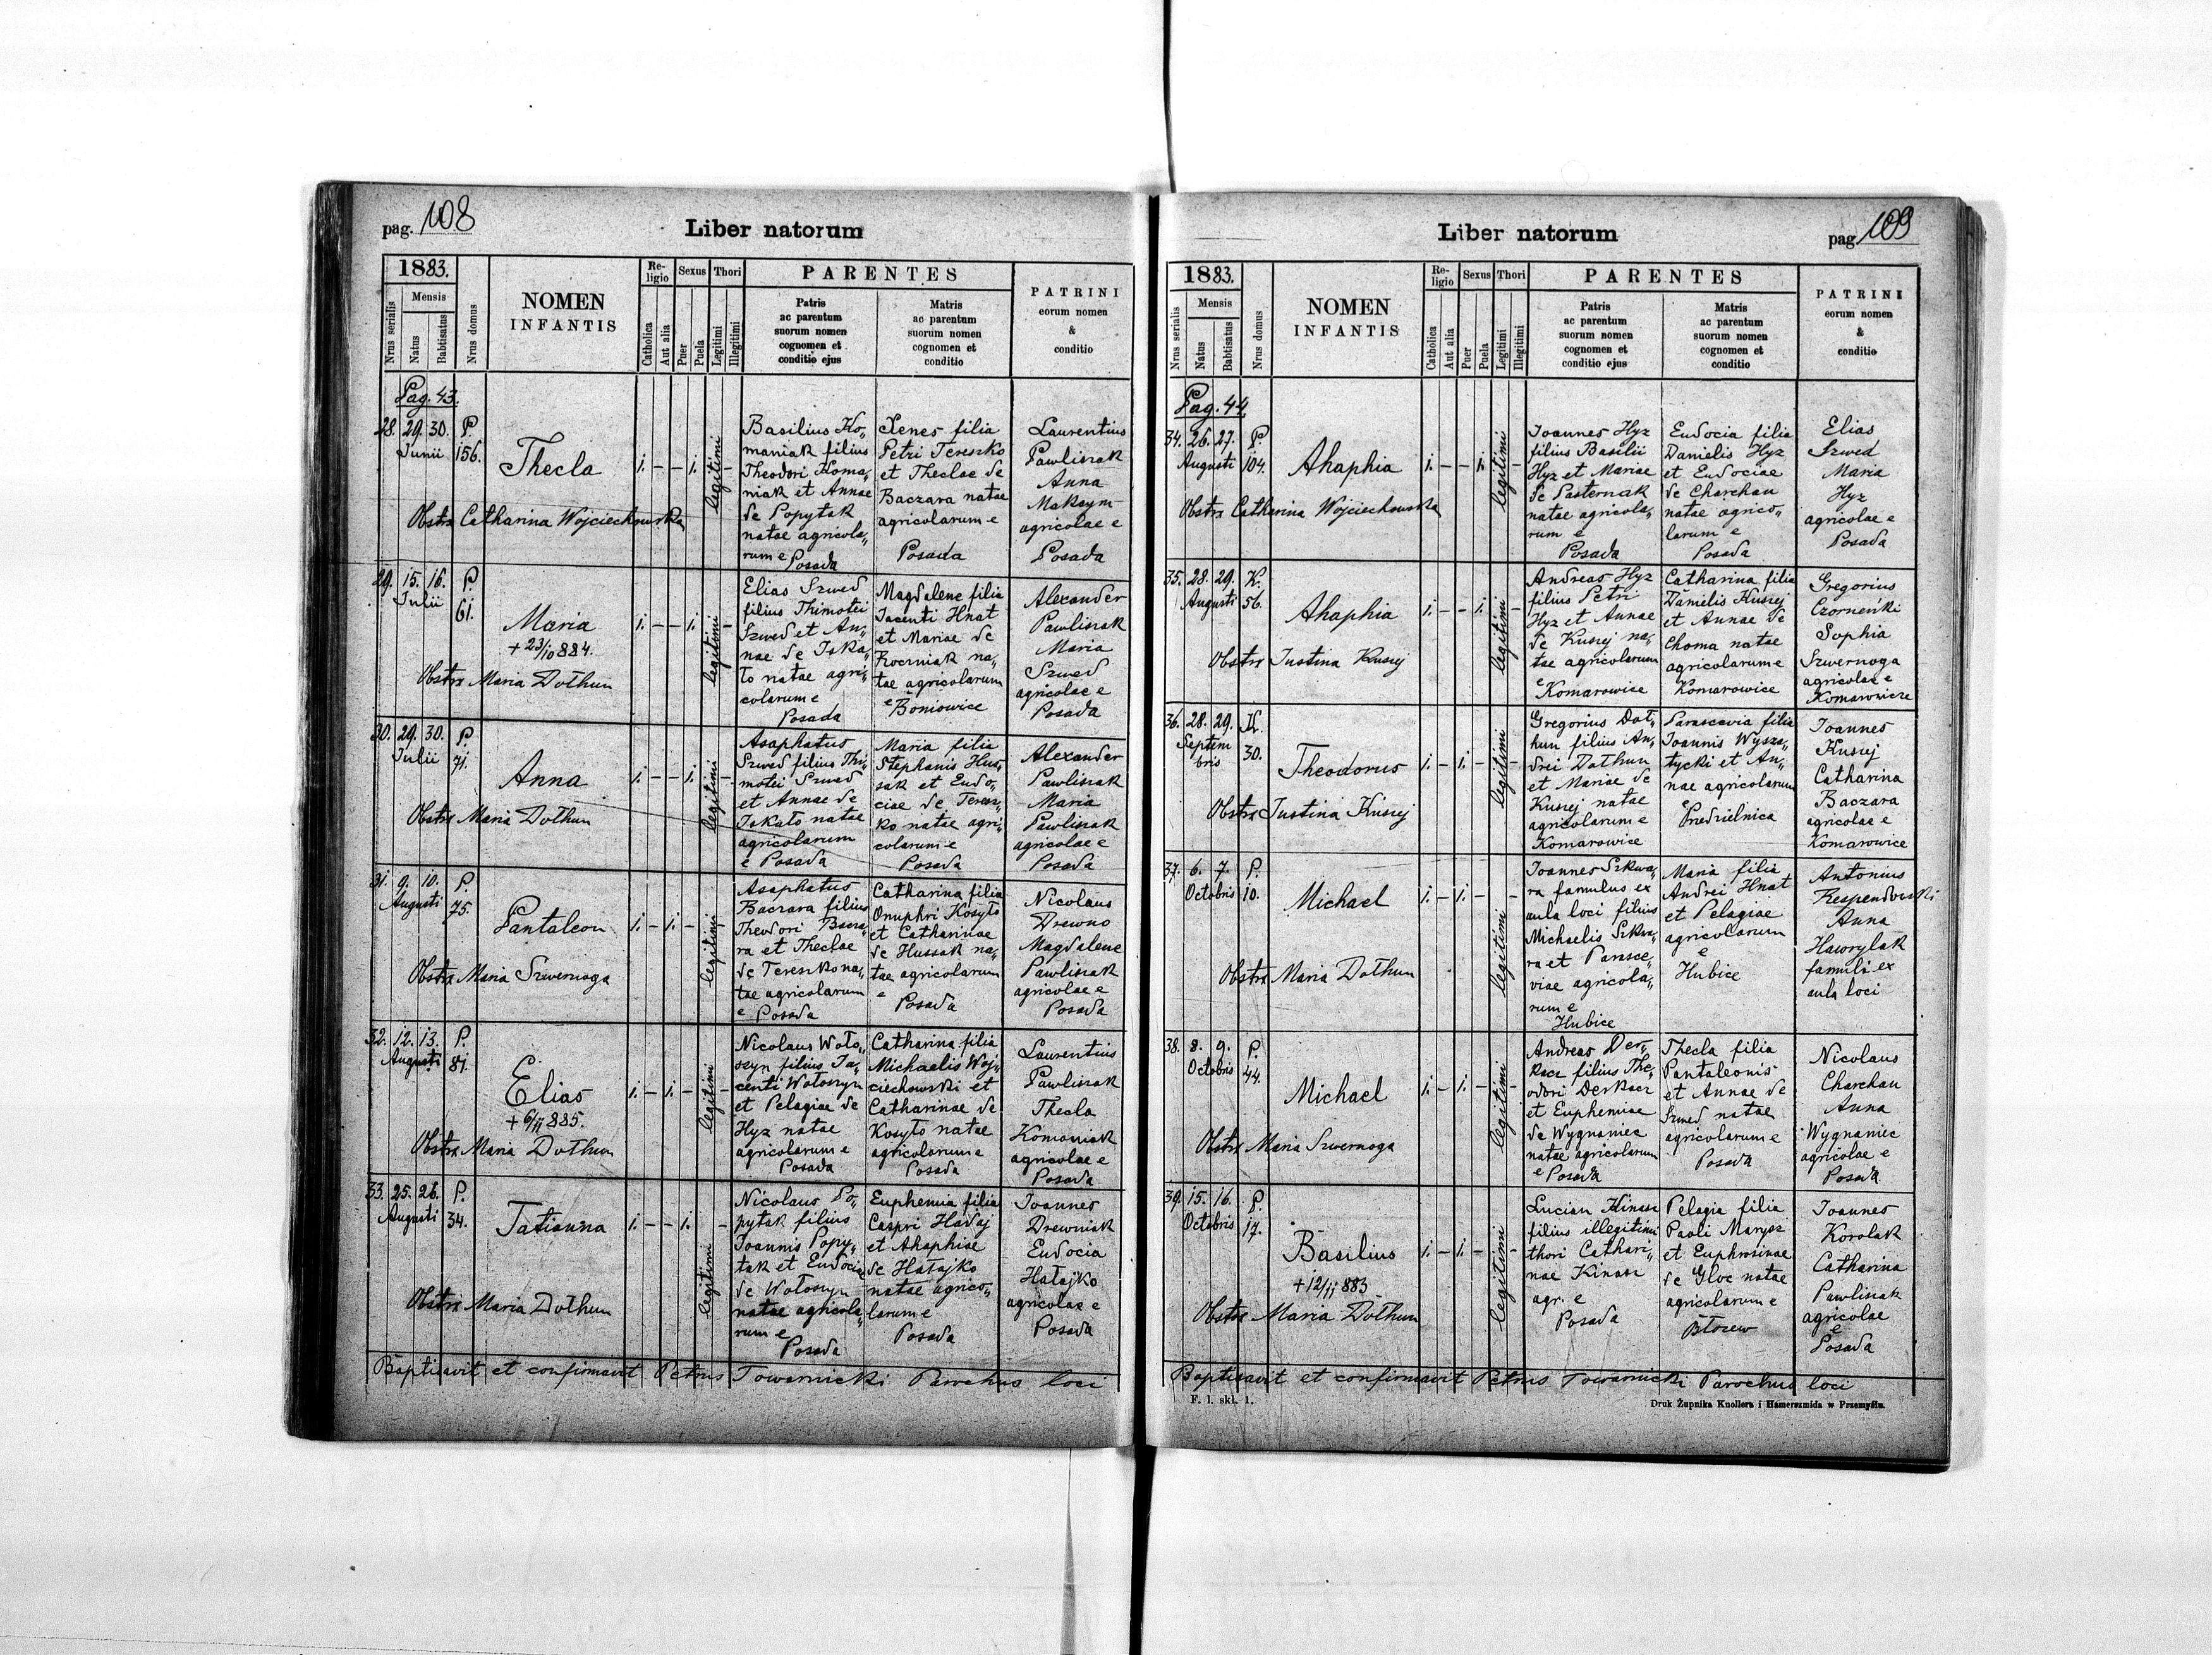 pag. 108
Liber natorum
1883.
Nrus serialis
Mensis
Natus
Babtisatus
Nrus domus
NOMEN
INFANTIS
Re-
ligio
Catholica
Aut alia
Sexus
Puer
Puela
Thori
Legitimi
Illegitimi
PARENTES
Patris
ac parentum
suorum nomen
cognomen et
conditio ejus
Matris
ac parentum
suorum nomen
cognomen et
conditio
PATRINI
eorum nomen
&
conditio
Pag. 43.
28. 29. 30. P.
Junii 156.
Thecla
Obstrx Catharina Wojciechowska
1. – – 1. –
legitimi
Basilius Ko„
maniak filius
Theodori Koma„
niak et Annae
de Popytak
natae agricola„
rum e Posada
Xenes filia
Petri Tereszko
et Theclae de
Baczara natae
agricolarum e
Posada
Laurentius
Pawliszak
Anna
Maksym
agricolae e
Posada
29. 15. 16. P.
Julii 61.
Maria
+ 23/10 884.
Obstrx Maria Dothun
1. – – 1. –
legitimi
Elias Szwed
filius Thimotei
Szwed et An„
nae de Jska„
to natae agri„
colarum e
Posada
Magdalene filia
Jacenti Hnat
et Mariae de
Koczniak na„
tae agricolarum
e Boniowice
Alexander
Pawliszak
Maria
Szwed
agricolae e
Posada
30. 29. 30. P.
Julii 71.
Anna
Obstrx Maria Dothun
1. – – 1. –
legitimi
Asaphatus
Szwed filius Thi„
motei Szwed
et Annae de
Jskato natae
agricolarum
e Posada
Maria filia
Stephanis Hus„
sak et Eudo„
ciae de Teresz„
ko natae agri„
colarum e
Posada
Alexander
Pawliszak
Maria
Pawliszak
agricolae e
Posada
31. 9. 10. P.
Augusti 75.
Pantaleon
Obstrx Maria Szwernoga
1. – 1. – –
legitimi
Asaphatus
Baczara filius
Theodori Bacza„
ra et Theclae
de Tereszko na„
tae agricolarum
e Posada
Catharina filia
Onuphri Kosyło
et Catharinae
de Hussak na„
tae agricolarum
e Posada
Nicolaus
Drewno
Magdalene
Pawliszak
agricolae e
Posada
32. 12. 13. P.
Augusti 81.
Elias
+ 6/11 885.
Obstrx Maria Dothun
1. – 1. – –
legitimi
Nicolaus Woło„
szyn filius Ja„
centi Wołoszyn
et Pelagiae de
Hyz natae
agricolarum e
Posada
Catharina filia
Michaelis Woj„
ciechowski et
Catharinae de
Kosyło natae
agricolarum e
Posada
Laurentius
Pawliszak
Thecla
Komaniak
agricolae e
Posada
33. 25. 26. P.
Augusti 34.
Tatianna
Obstrx Maria Dothun
1. – – 1. –
legitimi
Nicolaus Po„
pytak filius
Joannis Popy„
tak et Eudocia
de Wołoszyn
natae agricola„
rum e
Posada
Euphemia filia
Caspri Hadaj
et Ahaphiae
de Hałajko
natae agrico„
larum e
Posada
Joannes
Drewniak
Eudocia
Hałajko
agricolae e
Posada
Baptisavit et confirmavit Petrus Towarnicki Parochus loci
Liber natorum
pag. 109
1883.
Nrus serialis
Mensis
Natus
Babtisatus
Nrus domus
NOMEN
INFANTIS
Re-
ligio
Catholica
Aut alia
Sexus
Puer
Puela
Thori
Legitimi
Illegitimi
PARENTES
Patris
ac parentum
suorum nomen
cognomen et
conditio ejus
Matris
ac parentum
suorum nomen
cognomen et
conditio
PATRINI
eorum nomen
&
conditio
Pag. 44.
34. 26. 27. P.
Augusti 104.
Ahaphia
Obstrx Catharina Wojciechowska
1. – – 1. –
legitimi
Joannes Hyz
filius Basilii
Hyz et Mariae
de Pasternak
natae agricola„
rum e
Posada
Eudocia filia
Danielis Hyz
et Eudociae
de Charchau
natae agrico„
larum e
Posada
Elias
Szwed
Maria
Hyz
agricolae e
Posada
35. 28. 29. K.
Augusti 56.
Ahaphia
Obstrx Justina Kuszej
1. – – 1. –
legitimi
Andreas Hyz
filius Petri
Hyz et Annae
de Kuszej na„
tae agricolarum
e Komarowice
Catharina filia
Danielis Kuszej
et Annae de
Choma natae
agricolarum e
Komarowice
Gregorius
Czorneńki
Sophia
Szwernoga
agricolae e
Komarowicze
36. 28. 29. K.
Septem
bris 30.
Theodorus
Obstrx Justina Kuszej
1. – 1. – –
legitimi
Gregorius Dot„
hun filius An„
drei Dothun
et Mariae de
Kuszej natae
agricolarum e
Komarowice
Parascevia filia
Joannis Wysza„
tycki et An„
nae agricolarum
e
Predzielnica
Joannes
Kuszej
Catharina
Baczara
agricolae e
Komarowice
37. 6. 7. P.
Octobris 10.
Michael
Obstrx Maria Dothun
1. – 1. – –
legitimi
Joannes Szkwa„
ra famulus ex
aula loci filius
Michaelis Szkwa„
ra et Parasce„
viae agricola„
rum e
Hubice
Maria filia
Andrei Hnat
et Pelagiae
agricolarum
e
Hubice
Antonius
Anna
Hawrylak
famuli ex
aula loci
38. 8. 9. P.
Octobris 44.
Michael
Obstrx Maria Szwernoga
1. – 1. – –
legitimi
Andreas Der„
kacz filius The„
odori Derkacz
et Euphemiae
de Wygnaniec
natae agricolarum
e Posada
Thecla filia
Pantaleonis
et Annae de
Szwed natae
agricolarum e
Posada
Nicolaus
Charchau
Anna
Wygnaniec
agricolae e
Posada
39. 15. 16. P.
Octobris 17.
Basilius
+ 12/11 883
Obstrx Maria Dothun
1. – 1. – –
legitimi
Lucian Kinasz
filius illegitimi
thori Cathari„
nae Kinasz
agr. e
Posada
Pelagia filia
Paoli Marysz
et Euphrosinae
de Gloc natae
agricolarum e
Błozew
Joannes
Korolak
Catharina
Pawliszak
agricolae
e
Posada
Baptisavit et confirmavit Petrus Towarnicki Parochus loci
F. 1. skl. 1.
Druk Żupnika Knollera i Hamerszmida w Przemyślu.